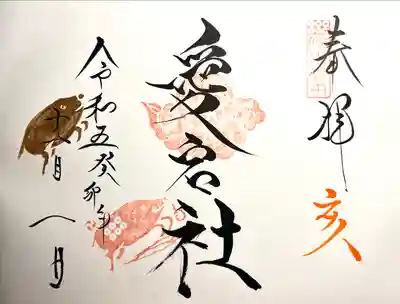 奉拝
亥
愛宕社
令和五癸卯年
十一月一日